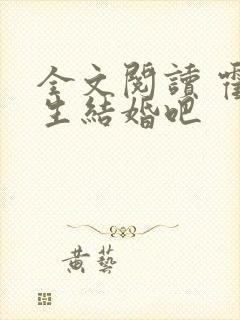 全文閱讀
生結婚吧
黃藝